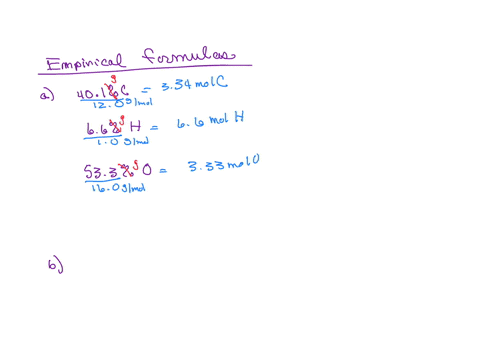 Empirical formulas
a) 40.1% g C = 3.34 mol C
12.0 g/mol
6.6% g H = 6.6 mol H
1.0 g/mol
53.3% g O = 3.33 mol O
16.0 g/mol
b)